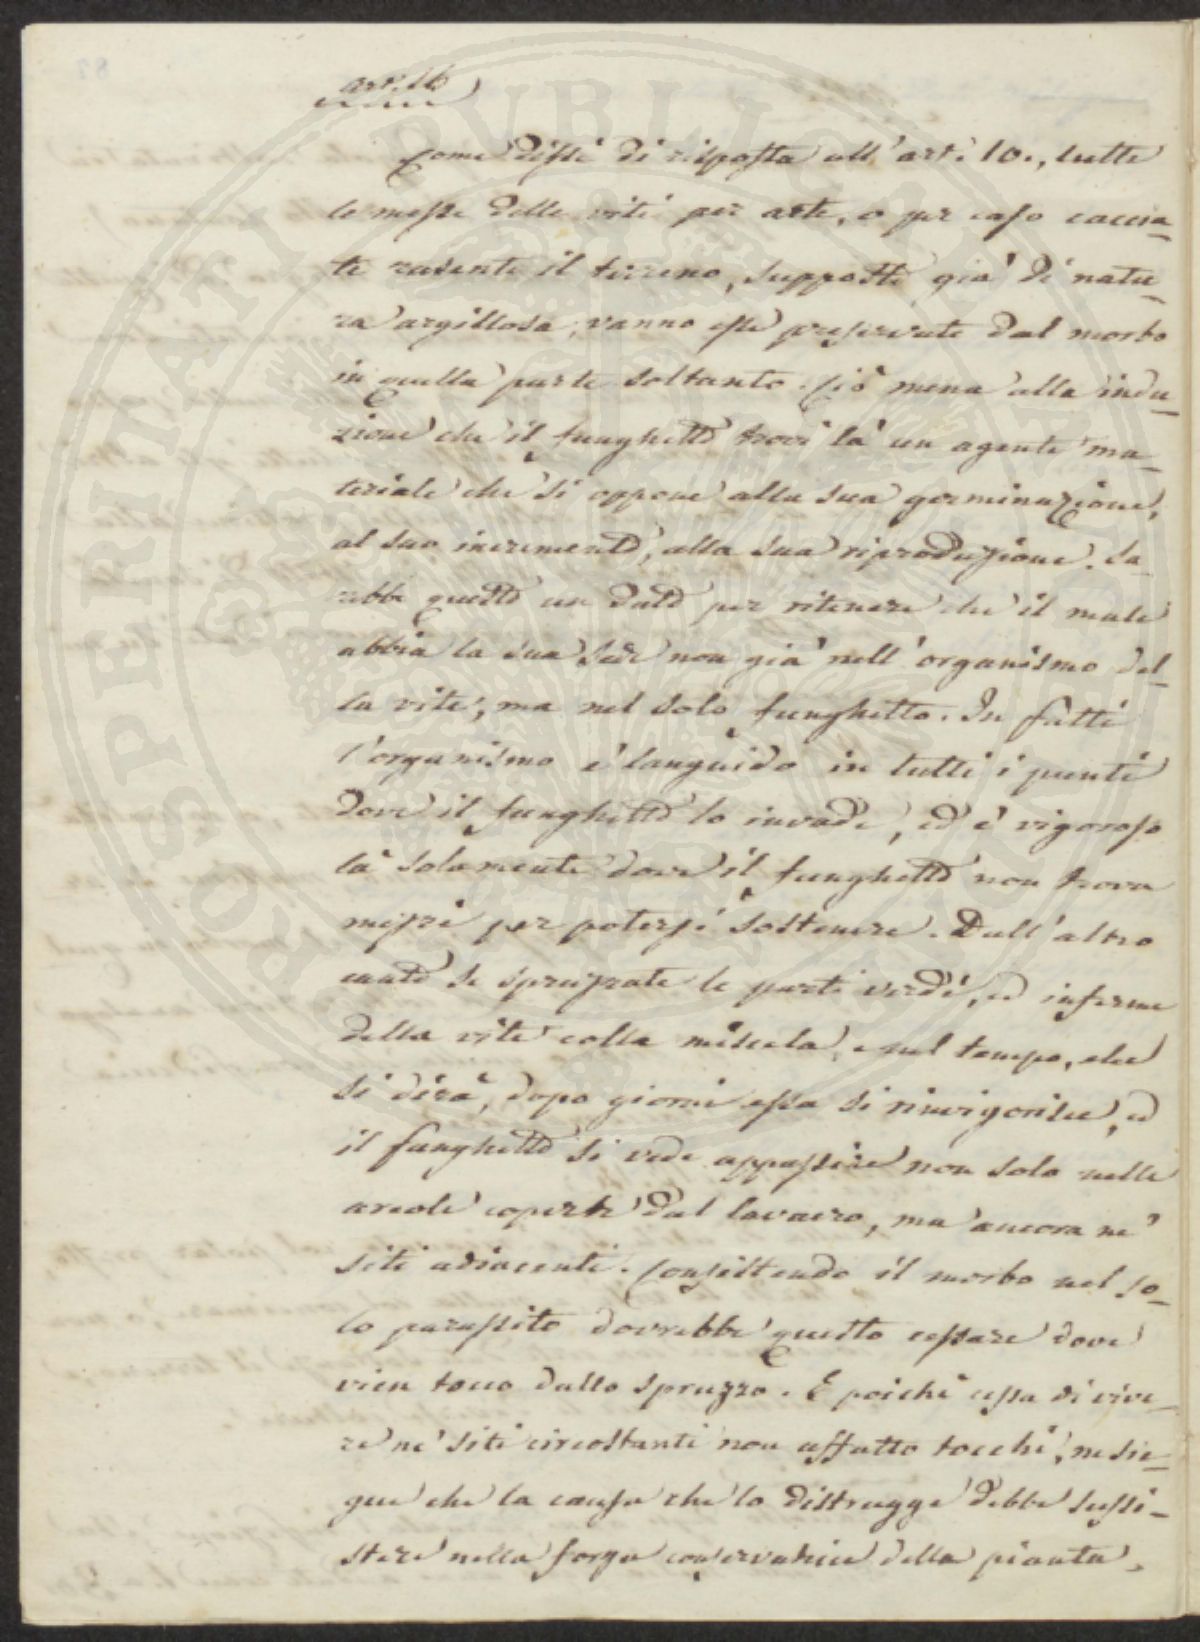 art. 16
Come dissi di risposta all'art.º 10., tutte
le messe delle viti per arte, o per caso caccia-
te rasente il terreno, supposte già di natu-
ra argillosa, vanno esse preservate dal morbo
in quella parte soltanto. Ciò mena alla indu-
zione che il funghetto trovi là un agente ma-
teriale che si oppone alla sua germinazione,
al suo incremento, alla sua riproduzione. Sa-
rebbe questo un dato per ritenere che il male
abbia la sua sede non già nell'organismo del-
la vite, ma nel solo funghetto. In fatti
l'organismo è languido in tutti i punti
dove il funghetto lo invade, ed è vigoroso
là solamente dove il funghetto non trova
mezzi per potersi sostenere. Dall'altro
canto se spruzzate le parti verdi, ed inferme
della vite colla miscela, e nel tempo, che
si dirà, dopo giorni essa si rinvigorisce, ed
il funghetto si vede appassire non solo nelle
areole coperte dal lavacro, ma ancora ne'
siti adiacenti. Consistendo il morbo nel so-
lo parassito dovrebbe questo cessare dove
vien tocco dallo spruzzo. E poichè cessa di vive-
re ne' siti circostanti non affatto tocchi, ne sie-
gue che la causa che lo distrugge debbe sussi-
stere nella forza conservatrice della pianta,
PROSPERITATI PUBLICAE